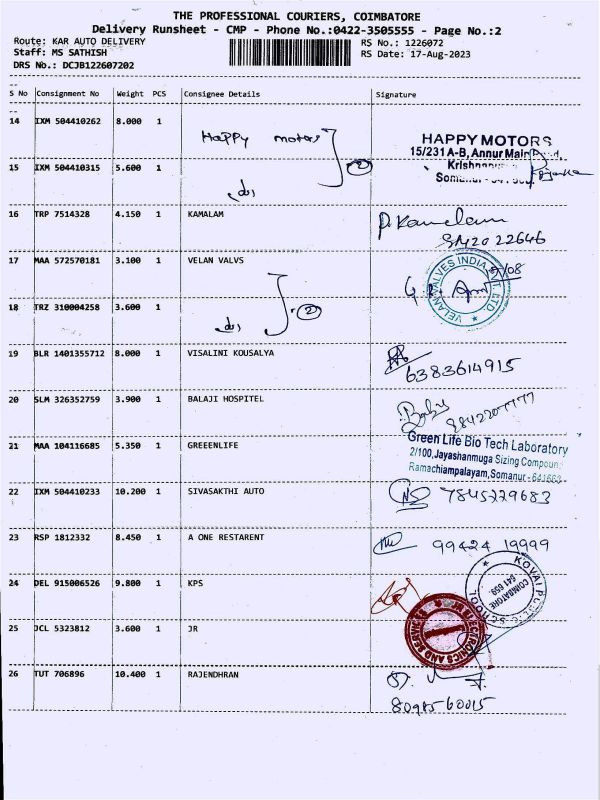 THE PROFESSIONAL COURIERS, COIMBATORE
Delivery Runsheet - CMP - Phone No.:0422-3505555 - Page No.:2
Route: KAR AUTO DELIVERY RS No.: 1226072
Staff: MS SATHISH RS Date: 17-Aug-2023
DRS No.: DCJB122607202
S No Consignment No Weight PCS Consignee Details Signature
14 IXM 504410262 8.000 1 Happy motors
HAPPY MOTORS
15/231 A-B, Annur Main Road,
15 IXM 504410315 5.600 1 2
16 TRP 7514328 4.150 1 KAMALAM P. Kamalam
9842022646
17 MAA 572570181 3.100 1 VELAN VALVS
VELAN VALVES INDIA PVT. LTD
18 TRZ 310004258 3.600 1 2
19 BLR 1401355712 8.000 1 VISALINI KOUSALYA 6383614915
20 SLM 326352759 3.900 1 BALAJI HOSPITEL
Green Life Bio Tech Laboratory
21 MAA 104116685 5.350 1 GREEENLIFE 2/100,Jayashanmuga Sizing Compoun
Ramachiampalayam,Somanur - 641668
22 IXM 504410233 10.200 1 SIVASAKTHI AUTO 7845229683
23 RSP 1812332 8.450 1 A ONE RESTARENT 99424 19999
24 DEL 915006526 9.800 1 KPS
KOVAI PUBLIC SCHOOL
COIMBATORE
641 659
25 JCL 5323812 3.600 1 JR
JR ELECTRONICS AND SERVICES
26 TUT 706896 10.400 1 RAJENDHRAN